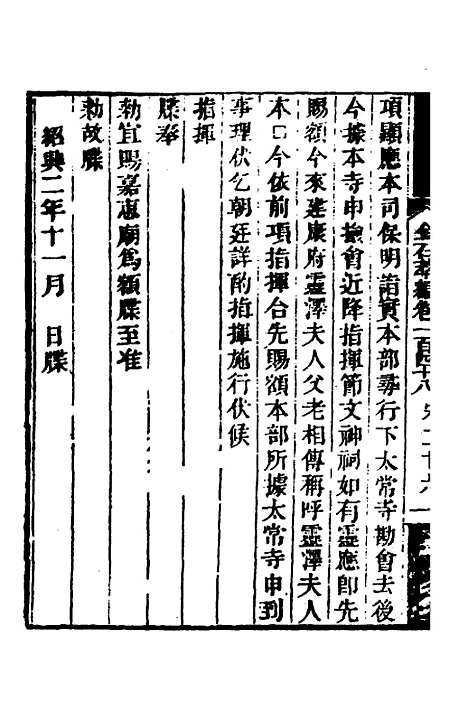 金石萃編卷一百四十八 宋二十六
項顯應本司保明詣實本部尋行下太常寺勘會去後
今據本寺申撿會近降指揮節文神祠如有靈應即先
賜額今來建康府靈澤夫人父老相傳稱呼靈澤夫人
本口今依前項指揮合先賜額本部所據太常寺申到
事理伏乞朝廷詳酌指揮施行伏候
指揮
牒奉
勑宜賜嘉惠廟爲額牒至准
勑故牒
紹興二年十一月 日牒